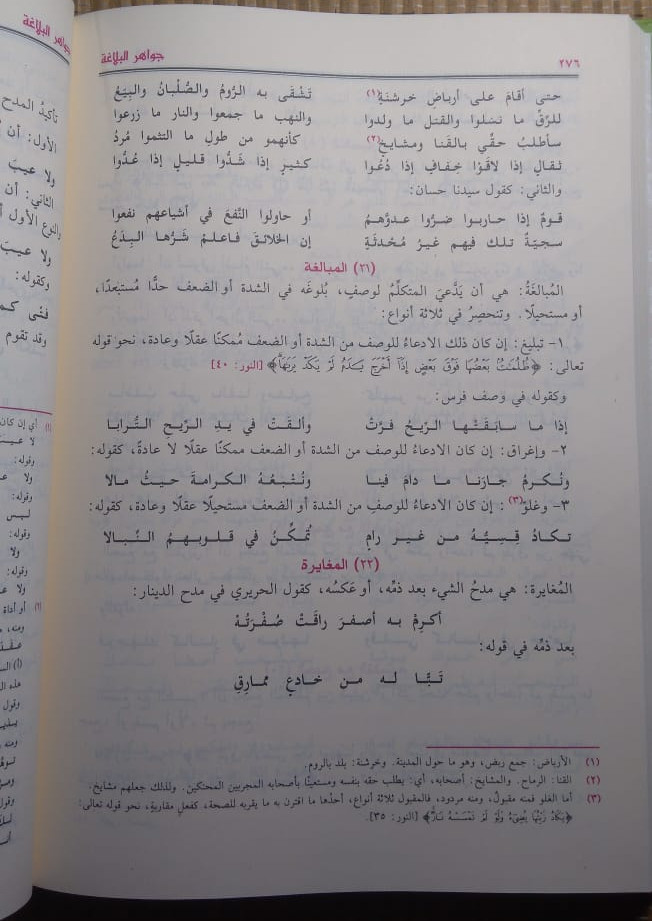 ٢٧٦ جواهر البلاغة
حتى أقامَ على أرباضِ خرشنَةٍ(١) تَشْقَى به الرُّومُ والصُّلْبانُ والبِيَعُ
للرِّقِّ ما نسَلوا والقتل ما ولدوا والنهب ما جمعوا والنار ما زرعوا
سأطلبُ حقِّي بالقَنا ومشايخ(٢) كأنهمو من طولِ ما التثموا مُردُ
ثقالٍ إذا لاقَوْا خِفافٍ إذا دُعُوا كثيرٍ إذا شَدُّوا قليلٍ إذا عُدُّوا
والثاني: كقول سيدنا حسان:
قومٌ إذا حاربوا ضرُّوا عدوَّهمُ أو حاولوا النَّفعَ في أشياعهم نفعوا
سجيَّةٌ تلك فيهم غيرُ مُحْدثَةٍ إن الخلائقَ فاعلمْ شرُّها البِدَعُ
(٢١) المبالغة
المُبالغَةُ: هي أن يَدَّعيَ المتكلِّمُ لوصفٍ، بُلوغَه في الشدة أو الضعف حدًّا مُستَبعَدًا،
أو مستحيلًا. وتنحصِرُ في ثلاثة أنواع:
١- تبليغ: إن كان ذلك الادعاءُ للوصف من الشدة أو الضعف مُمكنًا عقلًا وعادة، نحو قوله
تعالى: ﴿ظُلُمَٰتُۢ بَعْضُهَا فَوْقَ بَعْضٍ إِذَآ أَخْرَجَ يَكَدُهُۥ لَمْ يَكَدْ يَرَىٰهَا﴾ [النور: ٤٠]
وكقوله في وصف فرس:
إذا ما سابقَتْها الرِّيحُ فرَّتْ وألقَتْ في يدِ الرِّيحِ التُّرابا
٢- وإغراق: إن كان الادعاءُ للوصف من الشدة أو الضعف ممكنًا عقلًا لا عادةً، كقوله:
ونُكرمُ جارَنا ما دامَ فينا ونُتْبعُهُ الكرامةَ حيثُ مالا
٣- وغلو(٣): إن كان الادعاءُ للوصف من الشدة أو الضعف مستحيلًا عقلًا وعادة، كقوله:
تكادُ قِسِيُّهُ من غيرِ رامٍ تُمكِّنُ في قلوبهمُ النِّبالا
(٢٢) المغايرة
المُغايرة: هي مدحُ الشيء بعد ذمِّه، أو عَكسُه، كقول الحريري في مدح الدينار:
أكرِمْ به أصفرَ راقَتْ صُفْرَتُهُ
بعد ذمِّه في قوله:
تَبًّا له من خادعٍ ممارِقِ
(١) الأرباض: جمع ربض، وهو ما حول المدينة. وخرشنة: بلد بالروم.
(٢) القنا: الرماح. والمشايخ: أصحابه، أي: يطلب حقه بنفسه ومستعينًا بأصحابه المجربين المحنكين. ولذلك جعلهم مشايخ.
(٣) أما الغلو فمنه مقبولٌ، ومنه مردود، فالمقبول ثلاثة أنواع، أحدُها ما اقترن به ما يقربه للصحة، كفعل مقاربةٍ، نحو قوله تعالى:
﴿يَكَادُ زَيْتُهَا يُضِىٓءُ وَلَوْ لَمْ تَمْسَسْهُ نَارٌ﴾ [النور: ٣٥].
جواهر البلاغة
تأكيدُ المدح
الأول: أن
ولا عيبَ
الثاني: أن
والنوع الأول
ولا عيبَ
وكقوله:
فتًى كم
وقد تقوم
(١) أي إن كان
وقوله:
وقوله:
ليس
وقوله:
ولا
وقوله:
ولا
(٢) أو أداة
هذه
وقول
ومنه
وقول